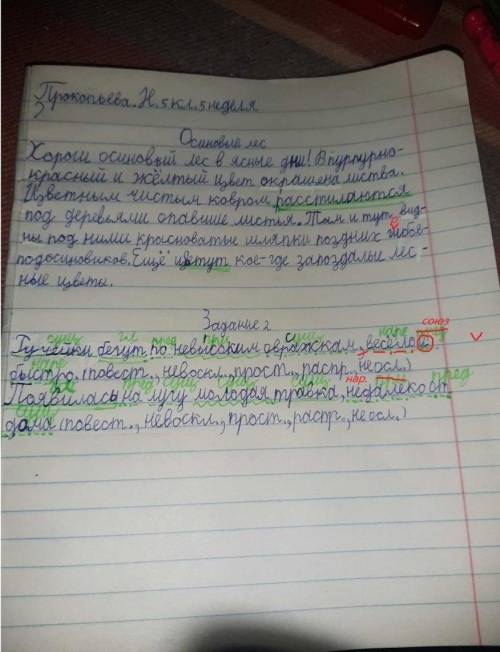 Прокопьева. Н. 5 кл. 5 неделя
3
Осиновый лес
Хорош осиновый лес в ясные дни! В пурпурно-
красный и жёлтый цвет окрашена листва.
Цветным чистым ковром расстилаются
под деревьями опавшие листья. Там и тут вид-
ны под ними красноватые шляпки поздних грибов
подосиновиков. Ещё цветут кое-где запоздалые лес-
ные цветы.
Задание 2
сущ гл пред при сущ наре союз
Ручейки бегут по невысоким овражкам, весело и
наре
быстро. (повест., невоскл., прост., распр., неосл.)
гл пред сущ при сущ нар. пред
Появилась на лугу молодая травка, недалеко от
сущ
дома (повест., невоскл., прост., распр., неосл.)